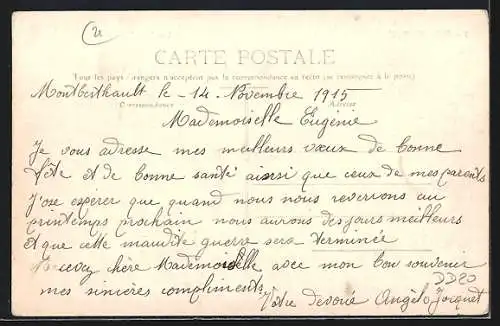 CARTE POSTALE
Tous les pays étrangers n'acceptent pas la correspondance au recto (se renseigner à la poste)
Montberthault le - 14 - Novembre 1915
Correspondance Adresse
Mademoiselle Eugénie
Je vous adresse mes meilleurs vœux de bonne
fête et de bonne santé ainsi que ceux de mes parents
J'ose espérer que quand nous nous reverrons au
printemps prochain nous aurons des jours meilleurs
et que cette maudite guerre sera terminée
Recevez chère Mademoiselle avec mon bon souvenir
DD20
mes sincères compliments.
Votre dévoué Angelo Jacquet